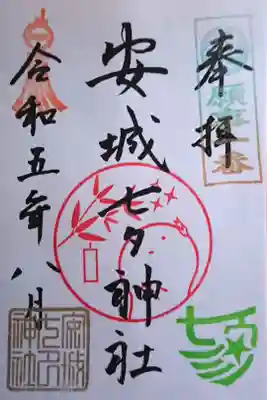 奉拝
願事一番
安城七夕神社
令和五年八月
安城
七夕
神社